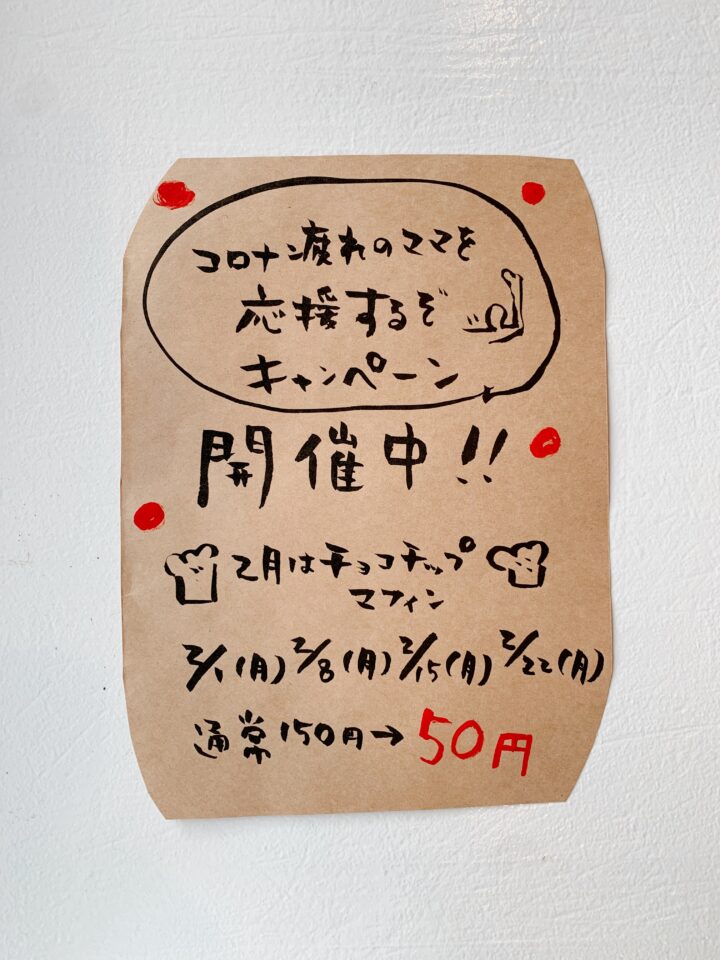 コロナ疲れのママを
応援するぞ
キャンペーン
開催中!!
2月はチョコチップ
マフィン
2/1(月) 2/8(月) 2/15(月) 2/22(月)
通常150円→50円